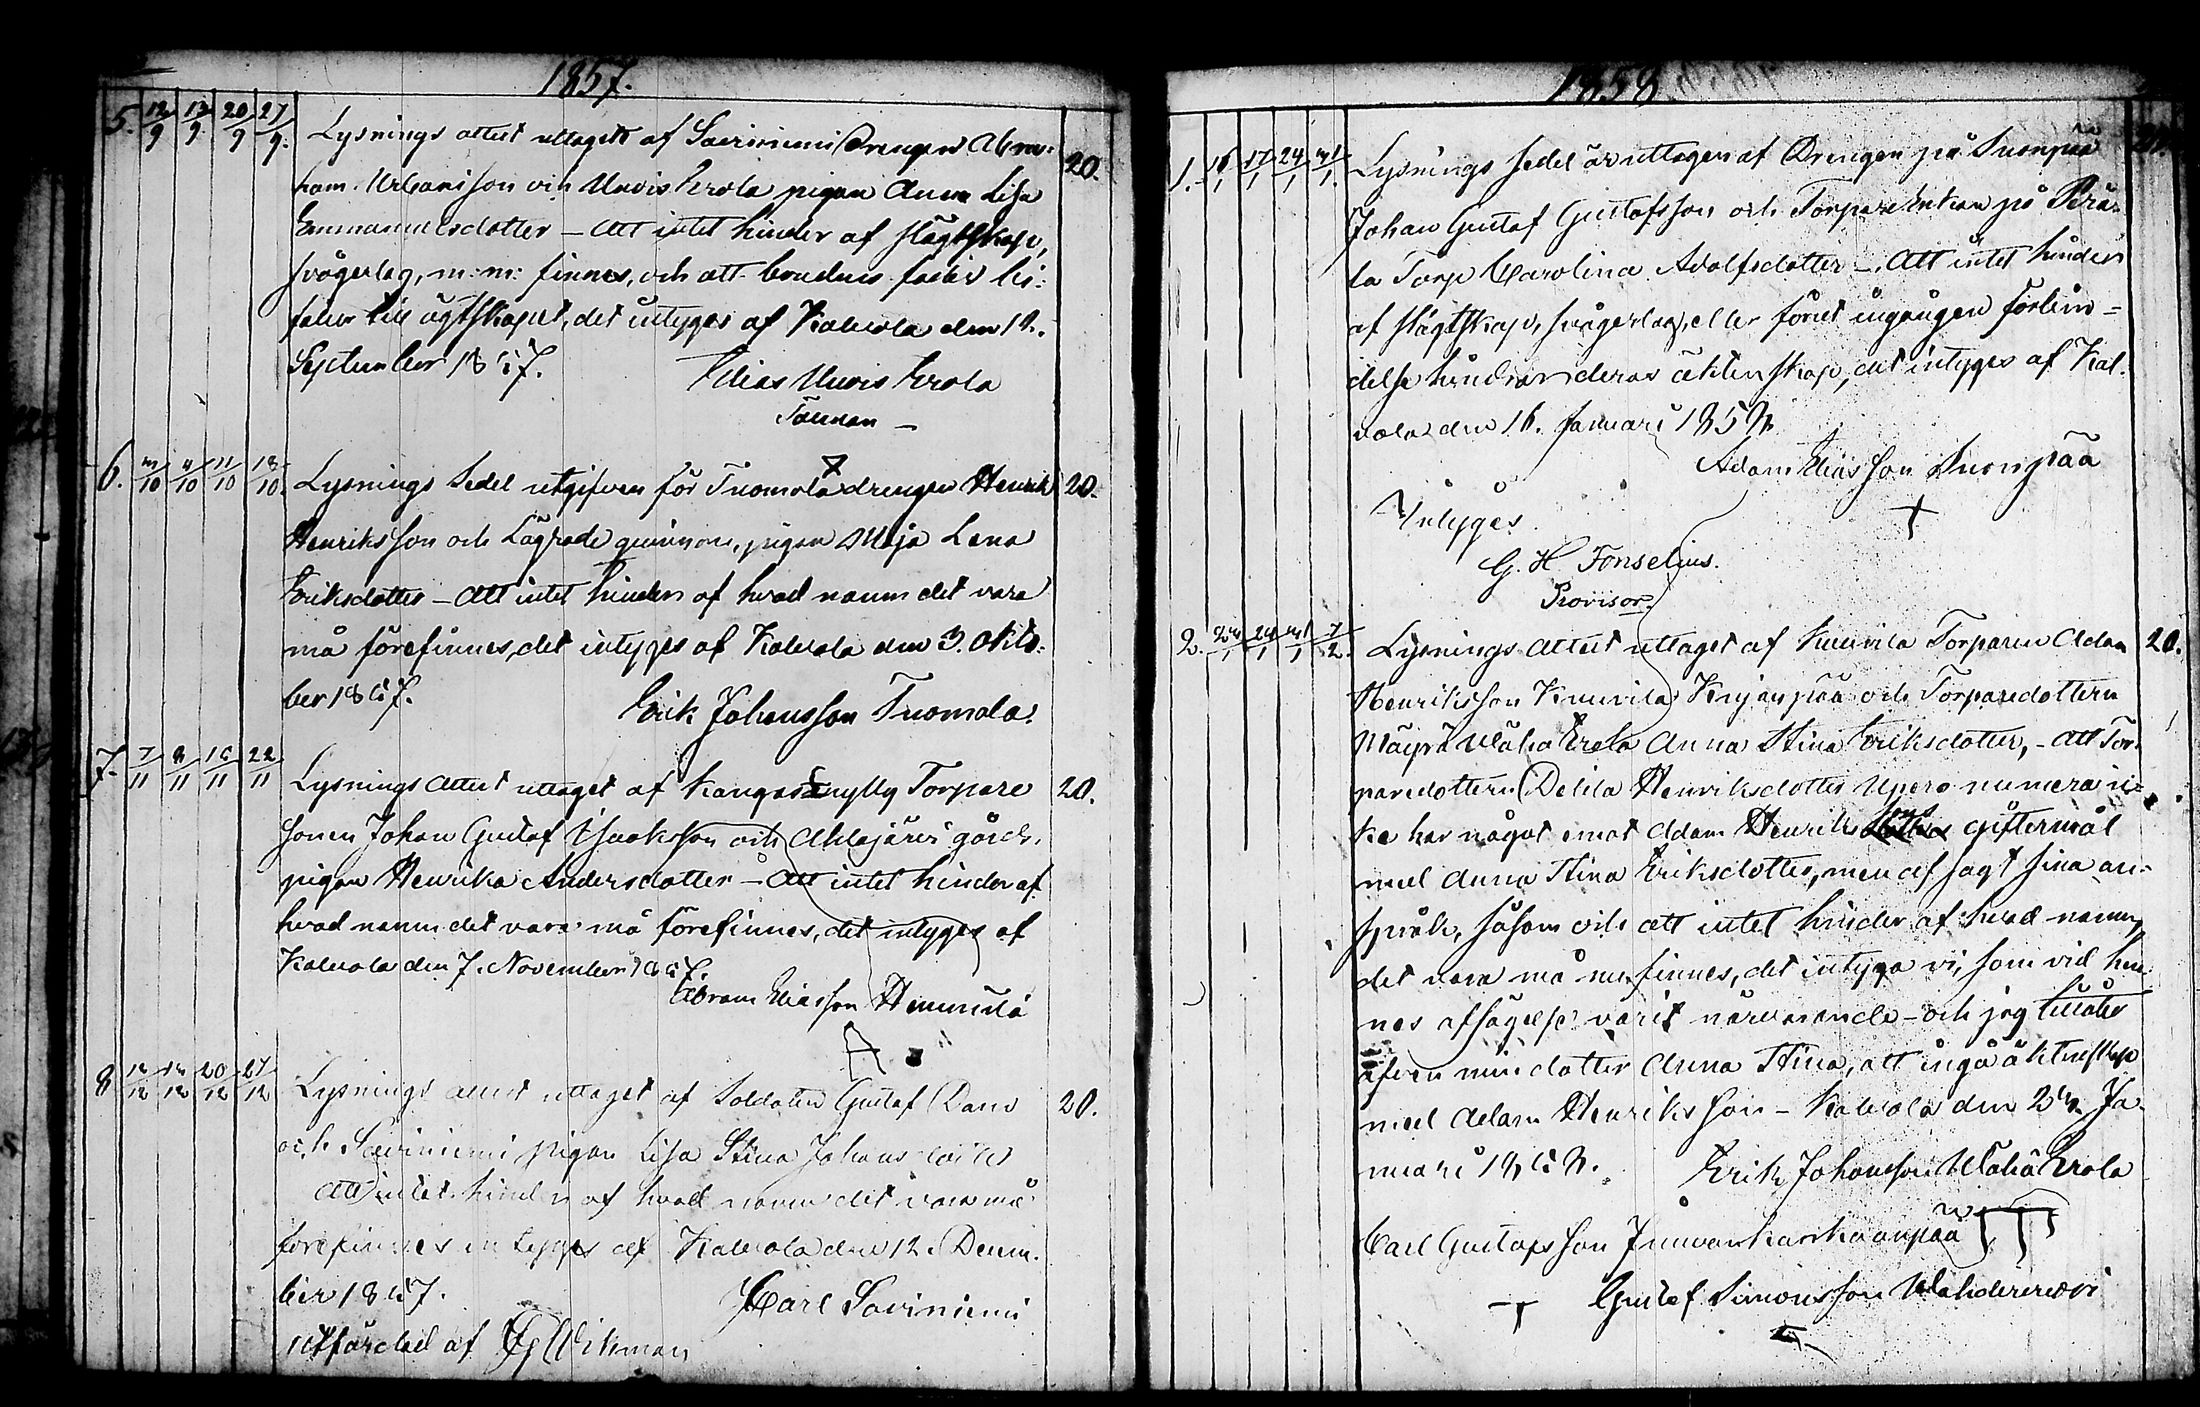 1857.
5. 12/9 13/9 20/9 27/9. Lysnings attest uttagits af Saviniemi Drengen Abra- 20.
ham Urbansson och Uuvis Erola pigan Anna Lisa
Emmanuelsdotter – Att intet hinder af slägtskap,
svågerlag, m: m: finnes, och att brudens fader bi-
faller till ägtskapet, det intyges af Kalvola den 12.
September 1857.
Elias Uuvis Erola
6. 3/10 4/10 11/10 18/10. Lysnings Sedel utgifven för Tuomola drengen Henrik 20.
Henriksson och Lägrade quinnon, pigan Maja Lena
Eriksdotter – Att intet hinder af hvad namn det vara
må förefinnes, det intyges af Kalvola den 3. Okto-
ber 1857.
Erik Johansson Tuomola.
7. 7/11 8/11 15/11 22/11 Lysnings Attest uttaget af Kangasmylly Torpare 20.
sonen Johan Gustaf Isaksson och Ahlajärvi gårds
pigan Henrika Andersdotter – Att intet hinder af
hvad namn det vara må förefinnes, det intyges af
Kalvola den 7. November 1857.
Abram Eliasson Hemmilä
8 12/12 13/12 20/12 27/12 Lysnings attest uttaget af Soldaten Gustaf Dans 20.
och Saviniemi pigan Lisa Stina Johansdotter
Att intet hinder af hvad namn det vara må
förefinnes intyges af Kalvola den 12. Decem-
ber 1857.
Carl Saviniemi
Utfärdad af Wikman
1858
1. 16/1 17/1 24/1 31/1. Lysnings sedel är uttagen af Drengen på Suonpää 20.
Johan Gustaf Gustafsson och Torpare Enkan på Perä-
la Torp Carolina Adolfsdotter – Att intet hinder
af slägtskap, svågerlag, eller förut ingången förbin-
delse hindrar deras äktenskap, det intyges af Kal-
vola den 16. Januari 1858
Adam Eliasson Suonpää
Intyges
G. H. Fonselius.
Provisor.
2. 23/1 24/1 31/1 7/2. Lysnings Attest uttaget af Kunnila Torparen Adam 20.
Henriksson Kunnila Knjanpää och Torparedottern
Mäyrä Wähä Erola Anna Stina Eriksdotter, – Att Tor-
paredottern Delila Henriksdotter Upero numera ic-
ke har något emot Adam Henriks giftermål
med Anna Stina Eriksdotter, men afsagt sina an-
språk, såsom och att intet hinder af hvad namn
det vara må nu finnes, det intyga vi, som vid hen-
nes afsägelse varit närvarande – och jag tillåter
äfven min dotter Anna Stina, att ingå äktenskap
med Adam Henriksson – Kalvola den 23. Ja-
nuari 1858.
Erik Johansson Wähä Erola
Carl Gustafsson
Gustaf Simonsson